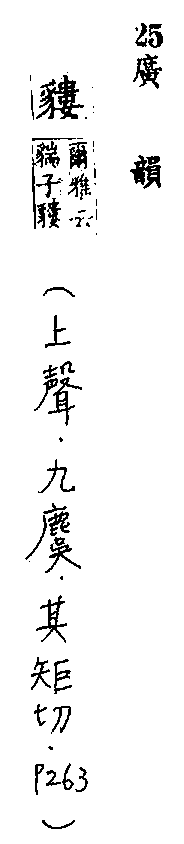 25廣韻
貗
爾雅云
貒子貗
(上聲．九麌．其矩切．P263)